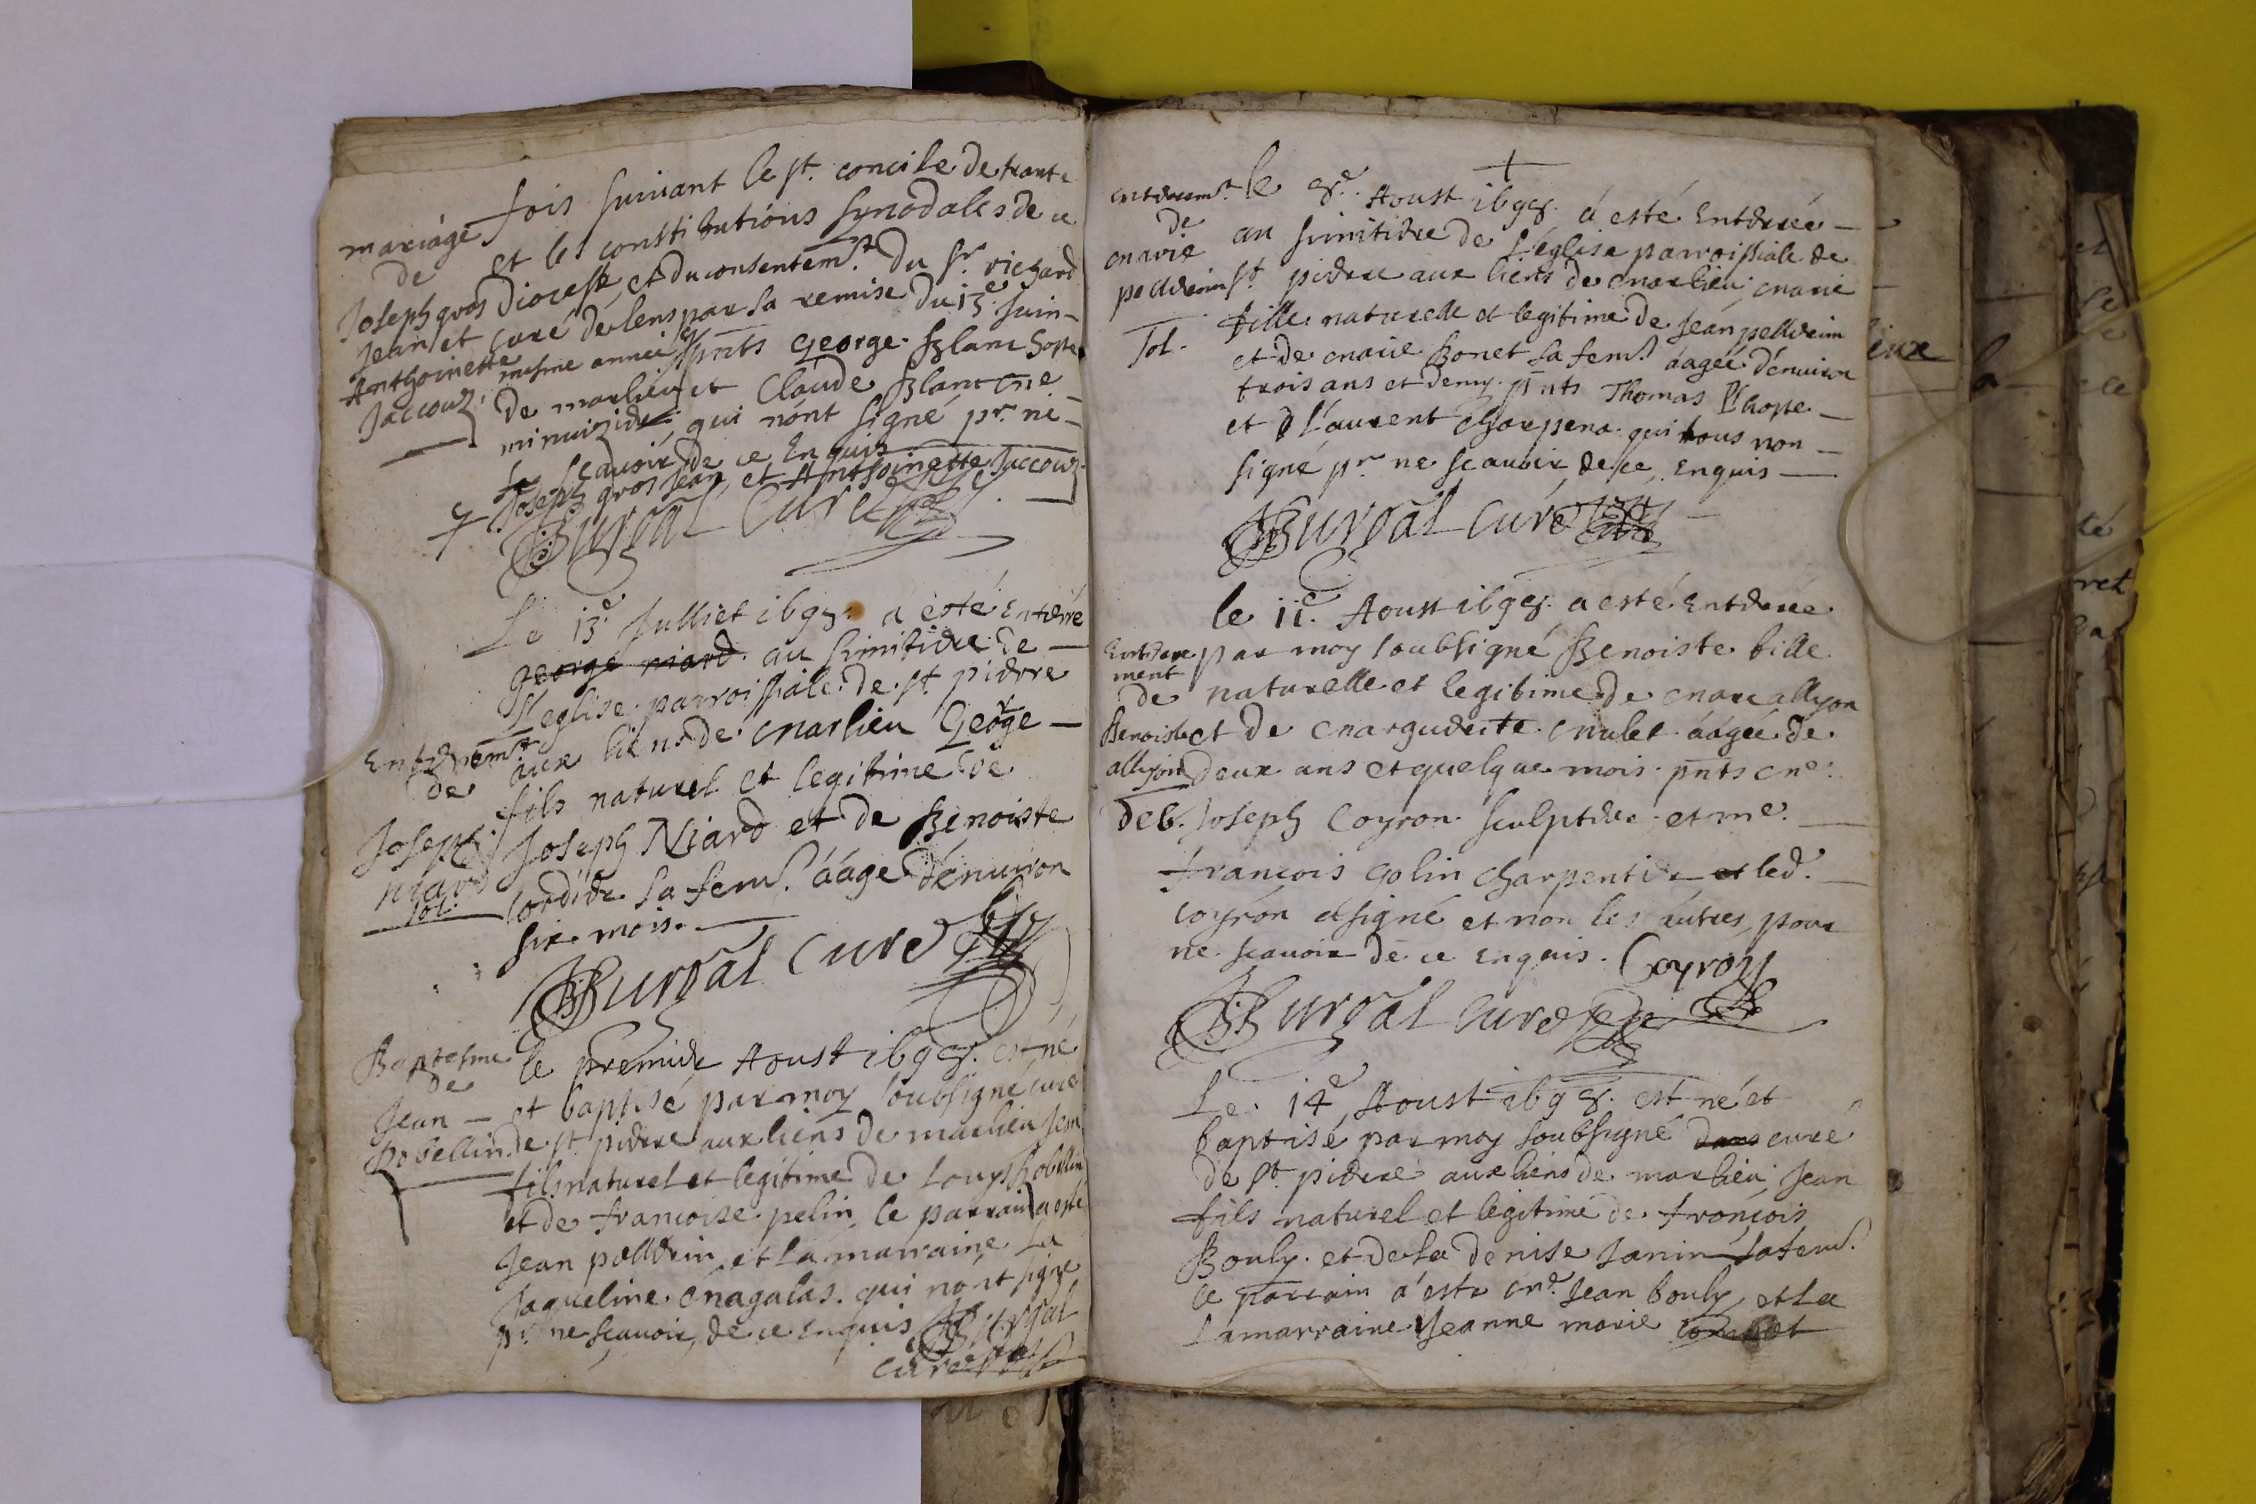 fois suivant le st. concile de trante
mariage
et les constitutions synodales de ce
de
diocese, et du consentemt. du sr. richard
Joseph gros
curé de lens par sa remise du 13e. juin
Jean et
mesme année pnts George Blanc hoste
Anthoinette
de marlieu et Claude Blanc me
Jaccouz
minuizier qui n'ont signé pr. ne
scavoir de ce Enquis
Joseph gros Jean, et Anthoinette Jaccouz.
Burgal Curé
Le 13e. Julliet 1698. a esté Enterré
george niard au simitiere de
l'eglise parroissiale de st. pierre
aux liens de marlieu George
Enterremt.
de
fils naturel et legitime de
Joseph
Joseph Niard et de Benoiste
niard
cordier sa fem. áágé d'enuiron
sol.
six mois.
Burgal Curé
Baptesme
le premier Aoust 1698. est né
de
et baptisé par moy soubsigné curé
Jean
de st. pierre aux liens de marlieu Jean
Robellin
fils naturel et legitime de Louys Robellin
et de francoise pelin, le parrain a esté
Jean pellerin et la marraine La
Jaqueline magalas. qui n'ont signé
pr. ne scauoir, de ce enquis Burgal
curé
enterremt. le 8e. Aoust 1698. á esté Enterrée
de
au simitiere de l'église parroissiale de
marie
st. pierre aux liens de marlieu, marie
pellerin
fille naturelle et legitime de Jean pellerin
sol.
et de marie Bonet sa fem. áagée d'enuiron
trois ans et demy. pnts Thomas l'hoste
et Laurent Charpena qui tous non
signé pr. ne scauoir de ce, Enquis
Burgal Curé
le 11e. Aoust 1698. a esté Enterrée
Enterre
ment
par moy soubsigné Benoiste fille
de
naturelle et legitime de marc allyon
Benoiste
et de marguerite mulet áágée de
allyon
deux ans et quelque mois. pnts me.
deb.
Joseph Coyron sculpteur et me.
francois Golin charpentier et led.
coyron a signé et non les áutres, pour
ne scauoir de ce enquis. Coyron
Burgal Curé
Le 14e Aoust 1698. est né et
baptisé par moy soubsigné dans curé
de st. pierre aux liens de marlieu, Jean
fils naturel et legitime de francois
Bouly et de la denise Janin sa fem.
le parrain a esté me. Jean bouly, et La
La marraine Jeanne marie